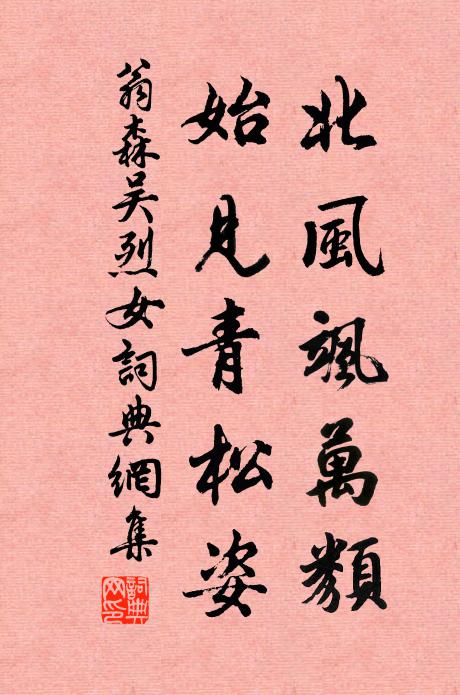 北風颯萬類
始見青松姿
翁森吳烈女詞典網集
詞典網印